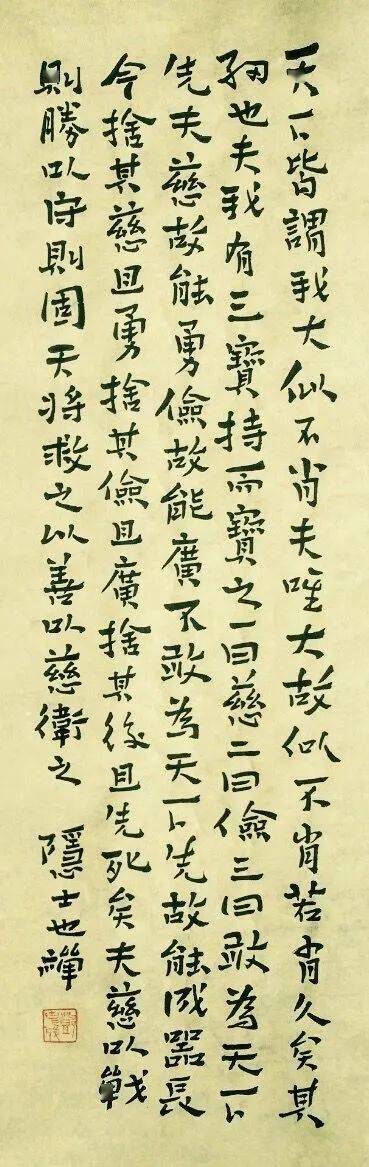 天下皆謂我大似不肖夫唯大故似不肖若肖久矣其
細也夫我有三寶持而寶之一曰慈二曰儉三曰敢為天下
先夫慈故能勇儉故能廣不敢為天下先故能成器長
今捨其慈且勇捨其儉且廣捨其後且先死矣夫慈以戰
則勝以守則固天將救之以善以慈衛之 隱士也禪